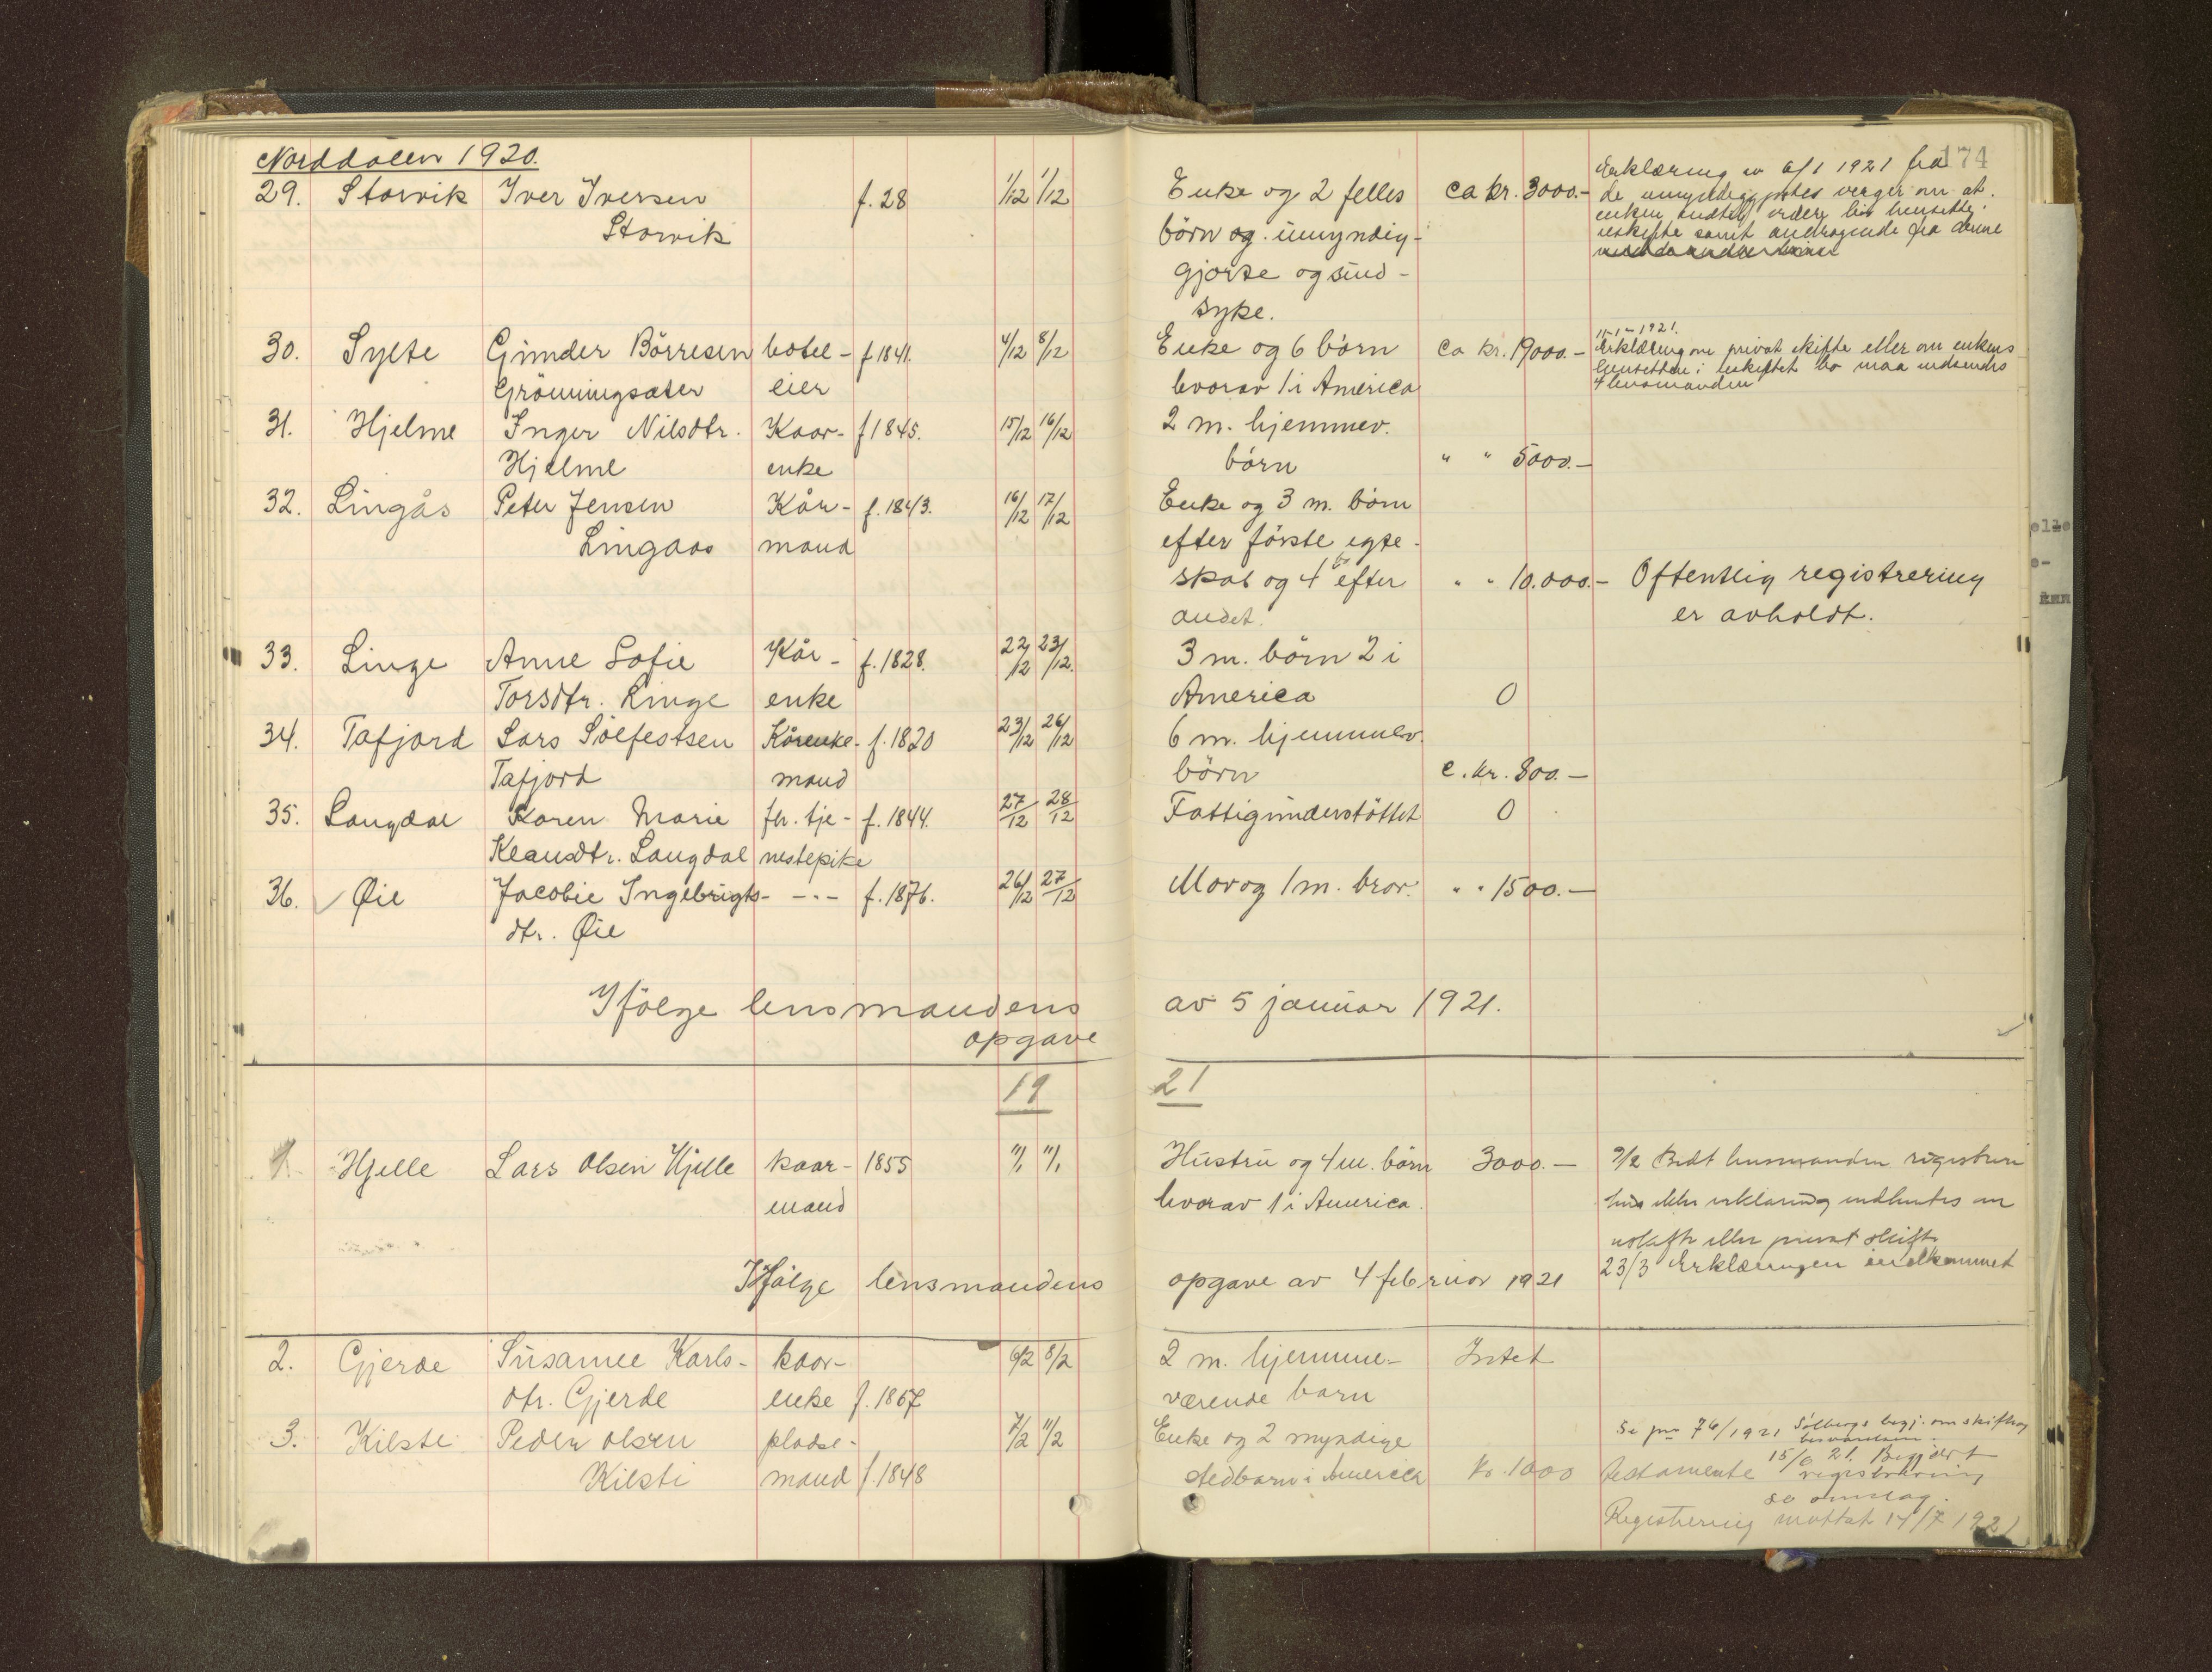 Norddalen 1920.
174
29. Storvik Iver Iversen f. 28 1/12 1/12 Enke og 2 felles ca kr. 3000.-
Storvik børn og umyndig-
gjorte og sind-
syke.
Erklæring av 6/1 1921 fra
de umyndiggjortes verger om at
enken
uskifte samt andragende fra denne
30. Sylte Gunder Börresen hotel- f 1841. 4/12 8/12 Enke og 6 börn ca kr. 19000.-
Grönningsæter eier hvorav 1 i America
11-1-1921.
Erklæring om privat skifte eller om enkens
hensitten i uskiftet bo maa indsendes
31. Hjelme Inger Nilsdtr. Kaar- f 1845. 15/12 16/12 2 m. hjemmev.
Hjelme enke börn " " 5000.-
32. Lingås Peter Jensen Kår- f. 1843. 16/12 17/12 Enke og 3 m. börn
Lingaas mand efter förste egte-
skab og 4 efter " " 10.000.- Offentlig registrering
andet. er avholdt.
33. Linge Anne Sofie Kår- f. 1828. 22/12 23/12. 3 m. börn 2 i
Torsdtr. Linge enke America 0
34. Tafjord Lars Sölfestsen Kårenke- f. 1820 23/12 26/12 6 m. hjemmev.
Tafjord mand börn c. kr. 800.-
35. Langdal Karen Marie fh. tje- f. 1844. 27/12 28/12 Fattigunderstöttet 0
Klausdtr. Langdal nestepike
36. Øie Jacobie Ingebrigts- -"- f. 1876. 26/12 27/12 Mor og 1 m. bror. " " 1500.-
dtr. Øie
Ifölge lensmandens av 5 januar 1921.
opgave
19 21
1. Hjelle Lars Olsen Hjelle kaar- 1855 11/1 11/1 Hustru og 4 m. börn 3000.-
mand hvorav 1 i America.
9/2 Bedt lensmanden registrere
hvis ikke erklæring indhentes om
uskifte eller privat skifte
23/3 Erklæringen indkommet
Ifölge lensmandens opgave av 4 februar 1921
2. Gjerde Susanne Karls- kaar- 6/2 8/2 2 m. hjemme- Intet
dtr. Gjerde enke f. 1857 værende barn
3. Kilste Peder Olsen plads- 7/2 11/2 Enke og 2 myndige
Kilsti mand f. 1848 stedbarn i America kr. 1000
Se jnr 76/1921 Sölbergs begj. om skifte og
testamente 15/6 21. Begjært
registrering
se omslag.
Registrering mottat 14/7 1921
elle
e-